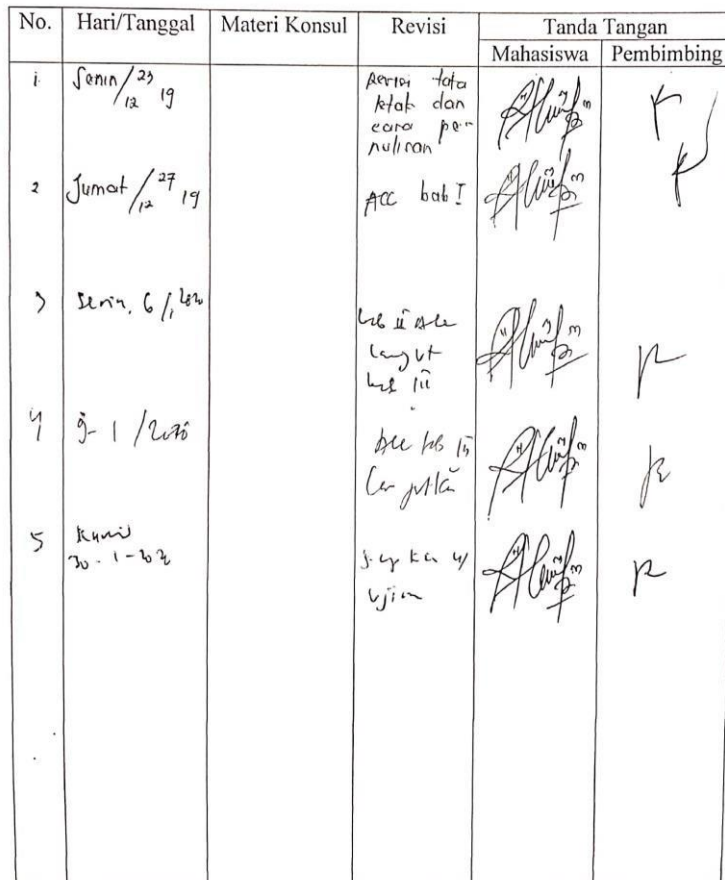 No. Hari/Tanggal Materi Konsul Revisi Tanda Tangan
Mahasiswa Pembimbing
1. Senin/23/12 19 Revisi tata
letak dan
cara pe-
nulisan
2 Jumat/27/12 19 ACC bab I
3 Senin, 6/1 2020
bab II Acc
lanjut
bab III
4 9-1/2020 Acc bab III
Lanjutkan
5 Kamis
30-1-2020
ujian